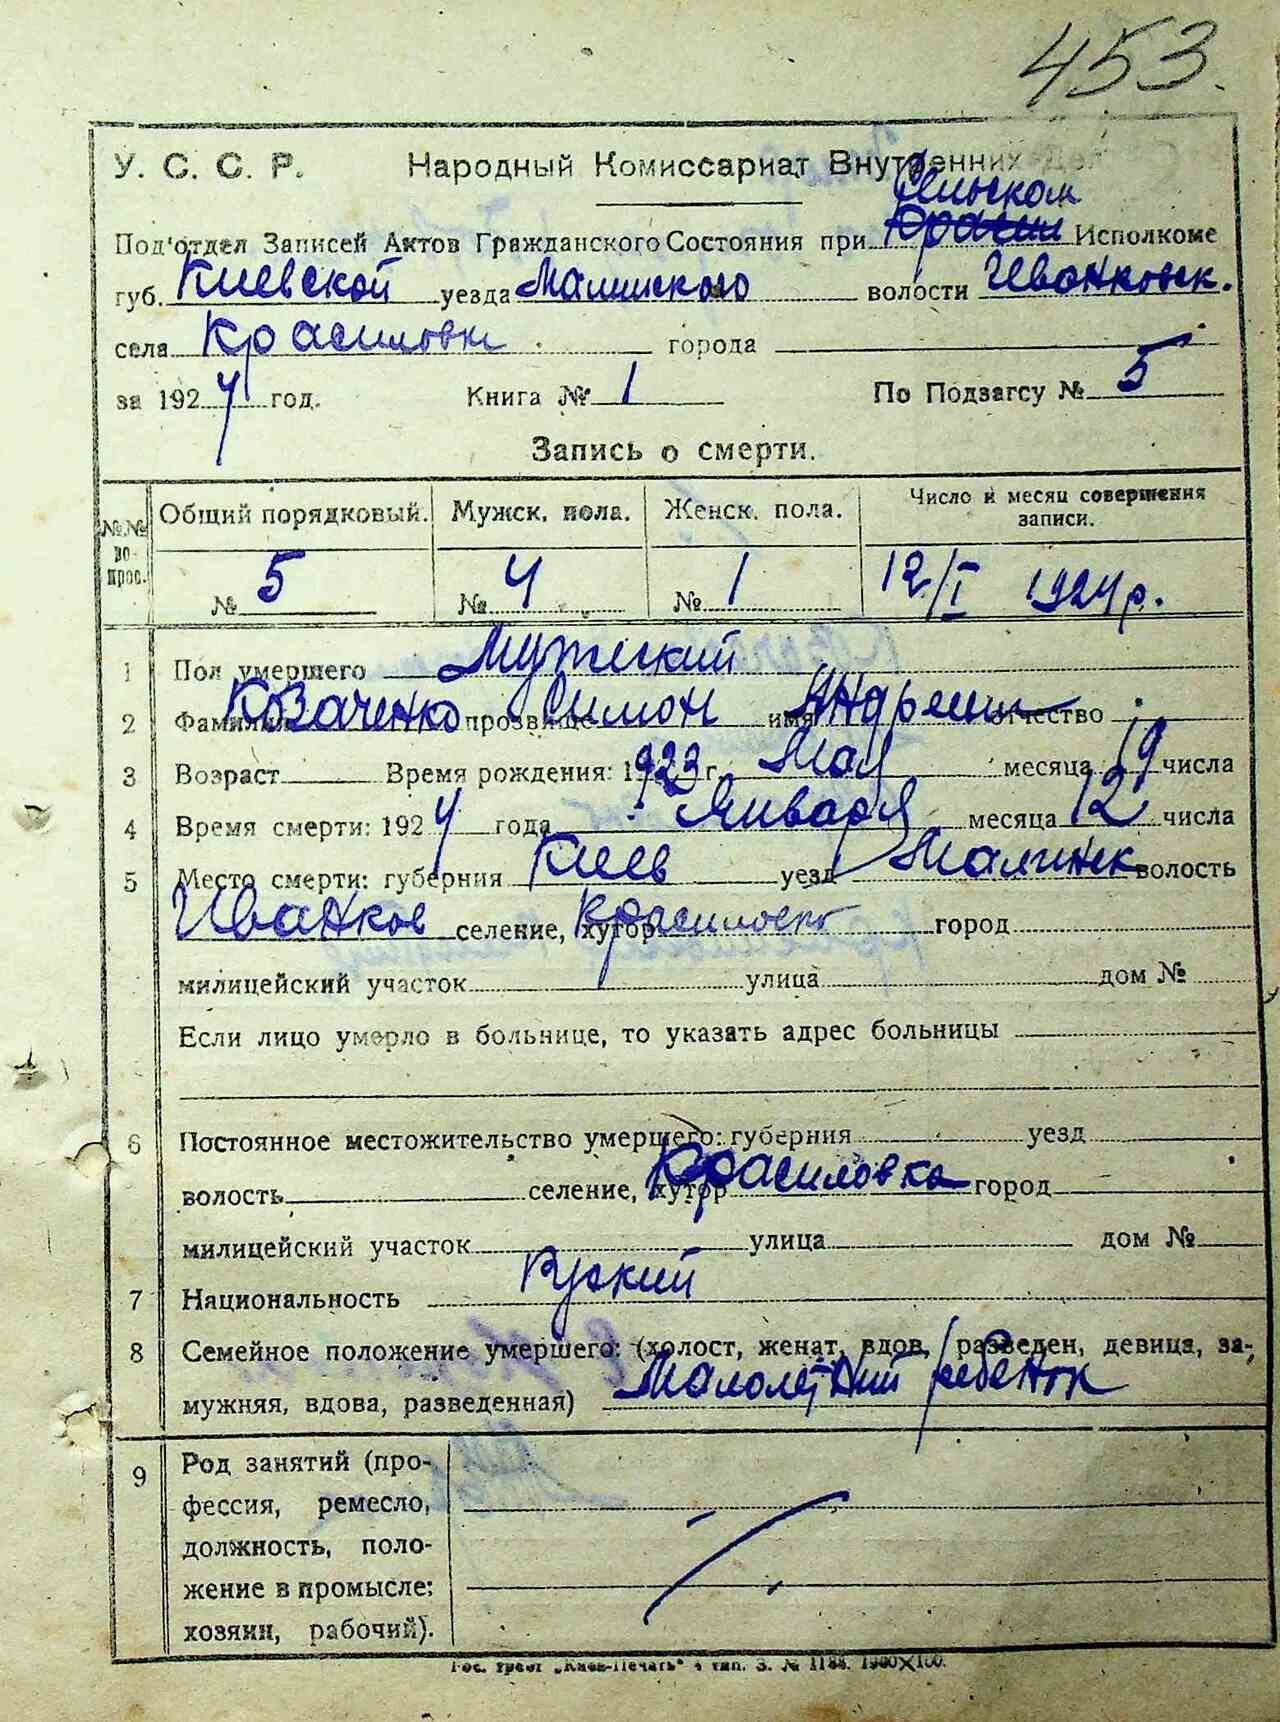 453.
У. С. С. Р. Народный Комиссариат Внутренних Дел
Сельском
Под'отдел Записей Актов Гражданского Состояния при Исполкоме
губ. Киевской уезда Малинского волости Иванковск.
села Красиловки города
за 1924 год. Книга № 1 По Подзагсу № 5
Запись о смерти.
№№ вопрос. Общий порядковый. Мужск. пола. Женск. пола. Число и месяц совершения записи.
№ 5 № 4 № 1 12/I 1924 р.
1 Пол умершего Мужеский
2 Фамилия Козаченко прозвище Симон имя Андреев отчество
3 Возраст Время рождения: 1923 г. Мая месяца 19 числа
4 Время смерти: 1924 года Января месяца 12 числа
5 Место смерти: губерния Киев уезд Малинск волость
Иванков селение, хутор Красиловка город
милицейский участок улица дом №
Если лицо умерло в больнице, то указать адрес больницы
6 Постоянное местожительство умершего: губерния уезд
волость селение, хутор Красиловка город
милицейский участок улица дом №
7 Национальность Руский
8 Семейное положение умершего: (холост, женат, вдов, разведен, девица, за-
мужняя, вдова, разведенная) Малолетний ребенок
9 Род занятий (про-
фессия, ремесло,
должность, поло-
жение в промысле:
хозяин, рабочий).
Гос. трест „Киев-Печать" 4 тип. З. № 1188. 1900×100.